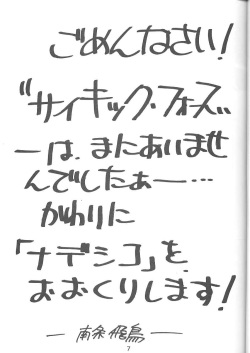 ごめんなさい!
"サイキック・フォーズ"
ーは、またあいませ
んでしたぁー…
かわりに
「ナデシコ」を、
おおくりします!
— 南条飛鳥 —
7